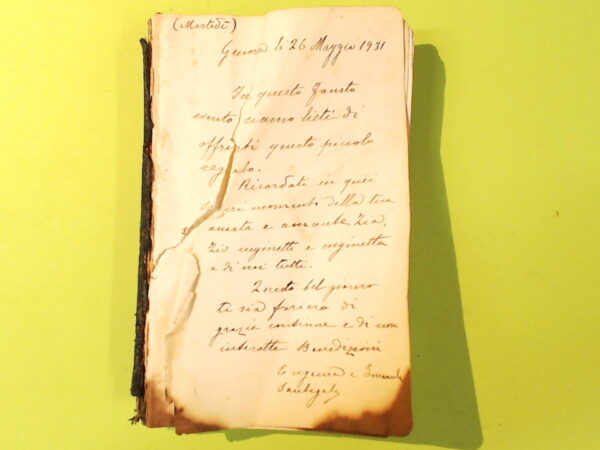 (Martedì)
Genova lì 26 Maggio 1931
In questo fausto
evento siamo lieti di
offrirti questo piccolo
regalo.
Ricordati in quei
momenti della tua
amata e amante Zia,
Zio cuginetti e cuginetta
e di noi tutti.
Questo bel giorno
te sia foriero di
grazie continue e di non
interrotte Benedizioni
Eugenia e